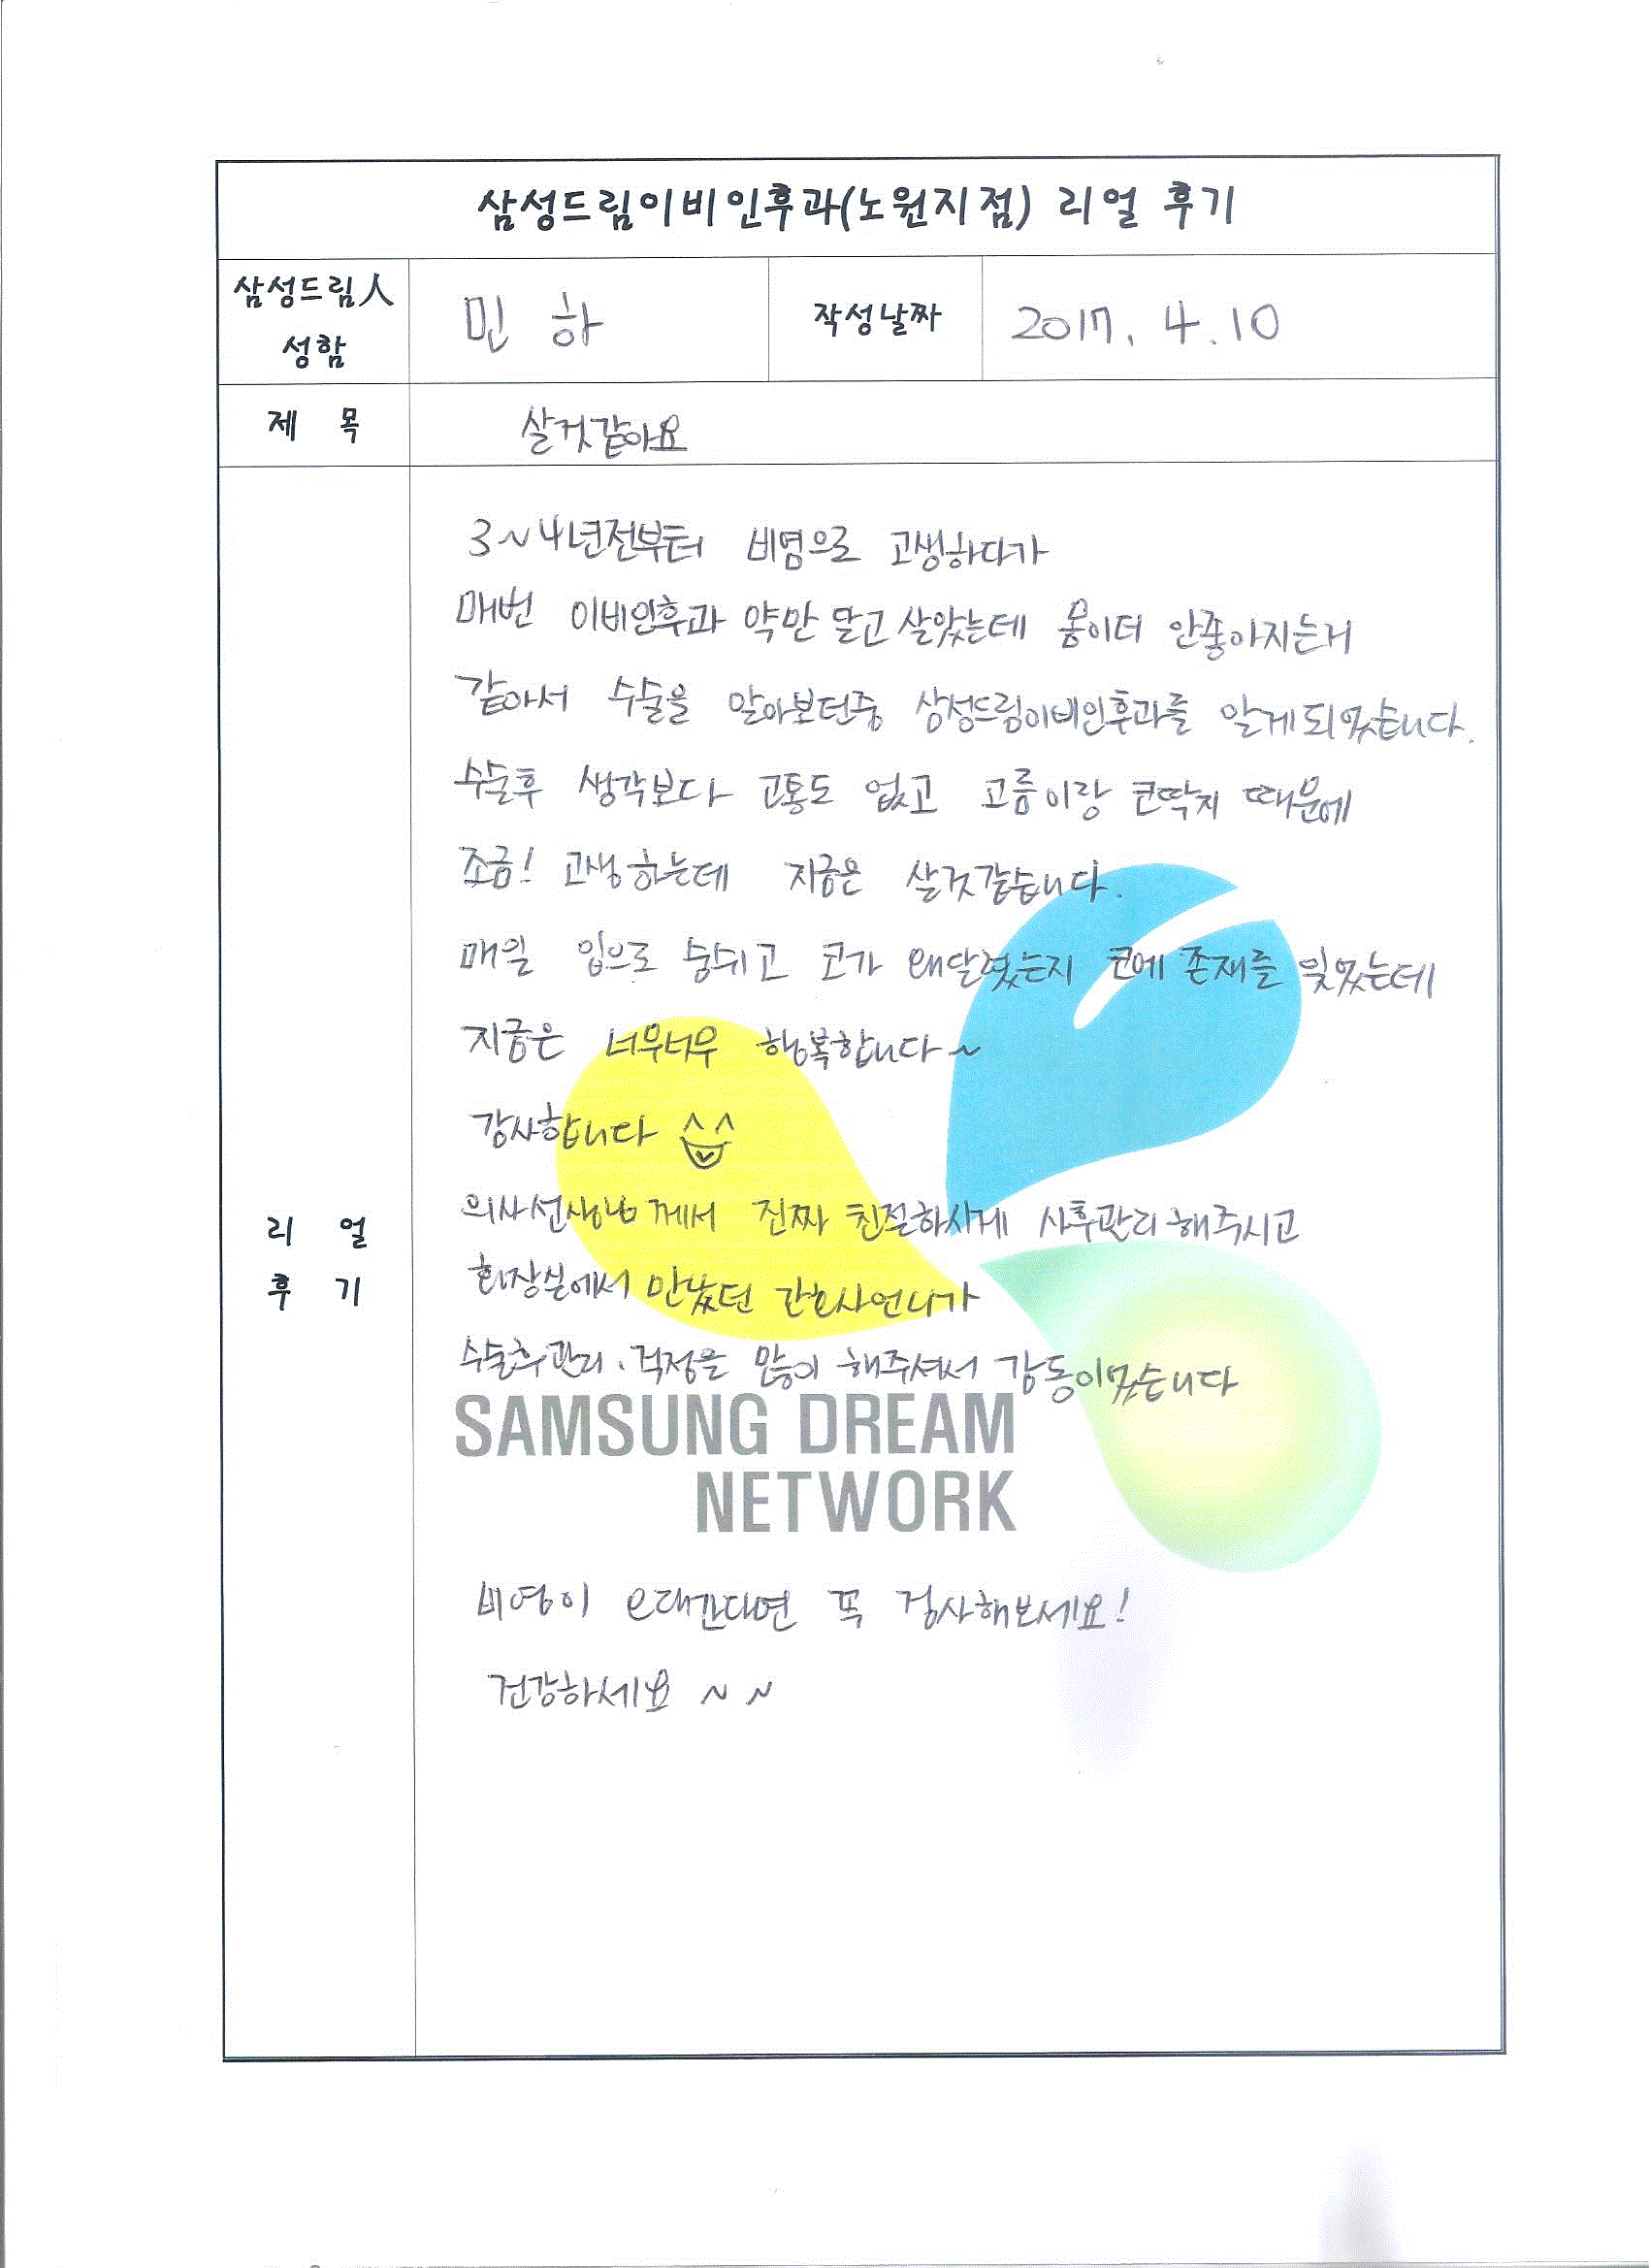 삼성드림이비인후과(노원지점) 리얼 후기
삼성드림人 성함
민 하
작성날짜
2017. 4. 10
제 목
살것같아요
3~4년전부터 비염으로 고생하다가
매번 이비인후과 약만 달고 살았는데 몸이더 안좋아지는거
같아서 수술을 알아보던중 삼성드림이비인후과를 알게되었습니다.
수술후 생각보다 고통도 없고 고름이랑 코딱지 때문에
조금! 고생하는데 지금은 살것같습니다.
매일 입으로 숨쉬고 코가 왜달렸는지 코에 존재를 잊었는데
지금은 너무너무 행복합니다~
감사합니다
의사선생님께서 진짜 친절하시게 사후관리해주시고
화장실에서 만났던 간호사언니가
수술후관리. 걱정을 많이 해주셔서 감동이었습니다
리 얼
후 기
SAMSUNG DREAM
NETWORK
비염이 오래간다면 꼭 검사해보세요!
건강하세요 ~ ~